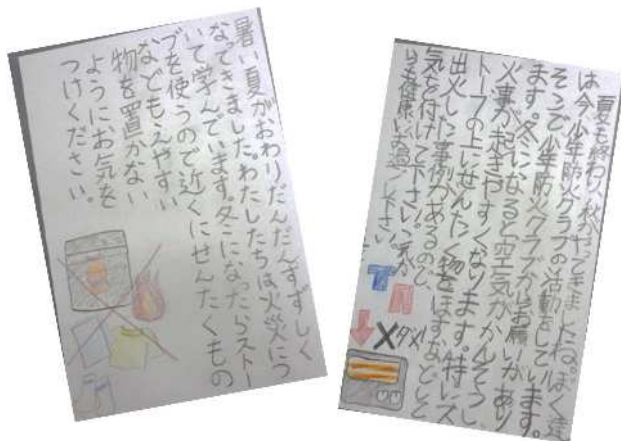 暑い夏がおわりだんだんすずしく
なってきました。わたしたちは火災につ
いて学んでいます。冬になったらストー
ブを使うので近くにせんたくもの
などもえやすい
物を置かない
ようにお気を
つけください。
夏も終わり、秋がやってきましたね。ぼく達
は今、少年防火クラブの活動をしています。
そこで、少年防火クラブからお願いがあり
ます。冬になると空気がかんそうし、
火事が起きやすくなります。特にス
トーブの上にせんたく物をほすなどして
出火した事例があるので、
気を付けて下さい。
も健康に過ごし下さい。
×ダメ!